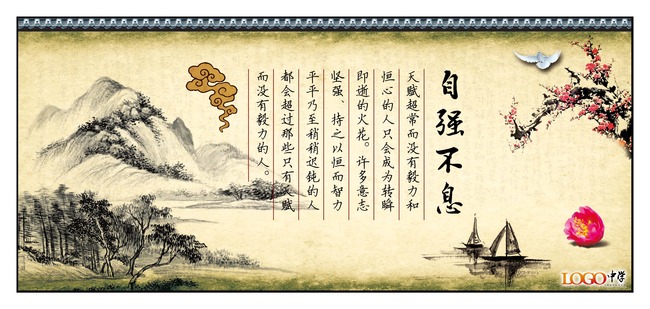 自强不息
天赋超常而没有毅力和
恒心的人只会成为转瞬
即逝的火花。许多意志
坚强、持之以恒而智力
平平乃至稍稍迟钝的人
都会超过那些只有天赋
而没有毅力的人。
LOGO中学